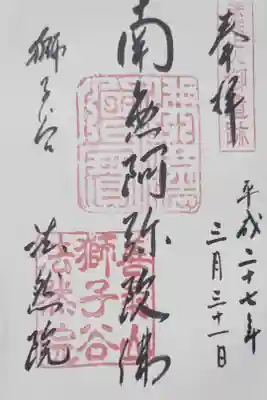 奉拝
平成二十七年
三月三十一日
南無阿弥陀佛
獅子谷
法然院
善気山
獅子谷
法然院